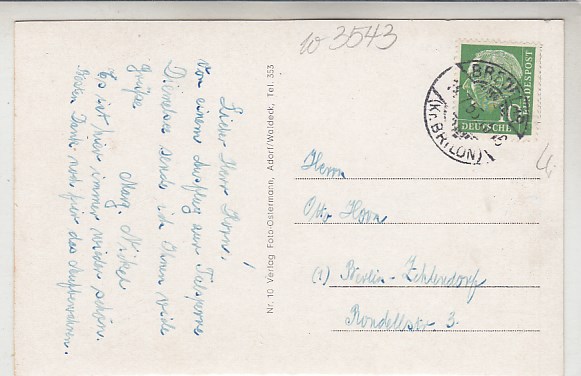 w 3543
Lieber Herr Horn!
Von einem Ausflug zur Talsperre
Diemelsee sende ich Ihnen viele
Grüße
Marg. Nickel
Es ist hier immer wieder schön.
Besten Dank noch für das Aufbewahren.
Nr. 10 Verlag Foto-Ostermann, Adorf/Waldeck, Tel. 353
DEUTSCHE BUNDESPOST
10
(Kr. BRILON)
Herrn
Otto Horn
(1) Berlin-Zehlendorf
Rondellstr. 3.